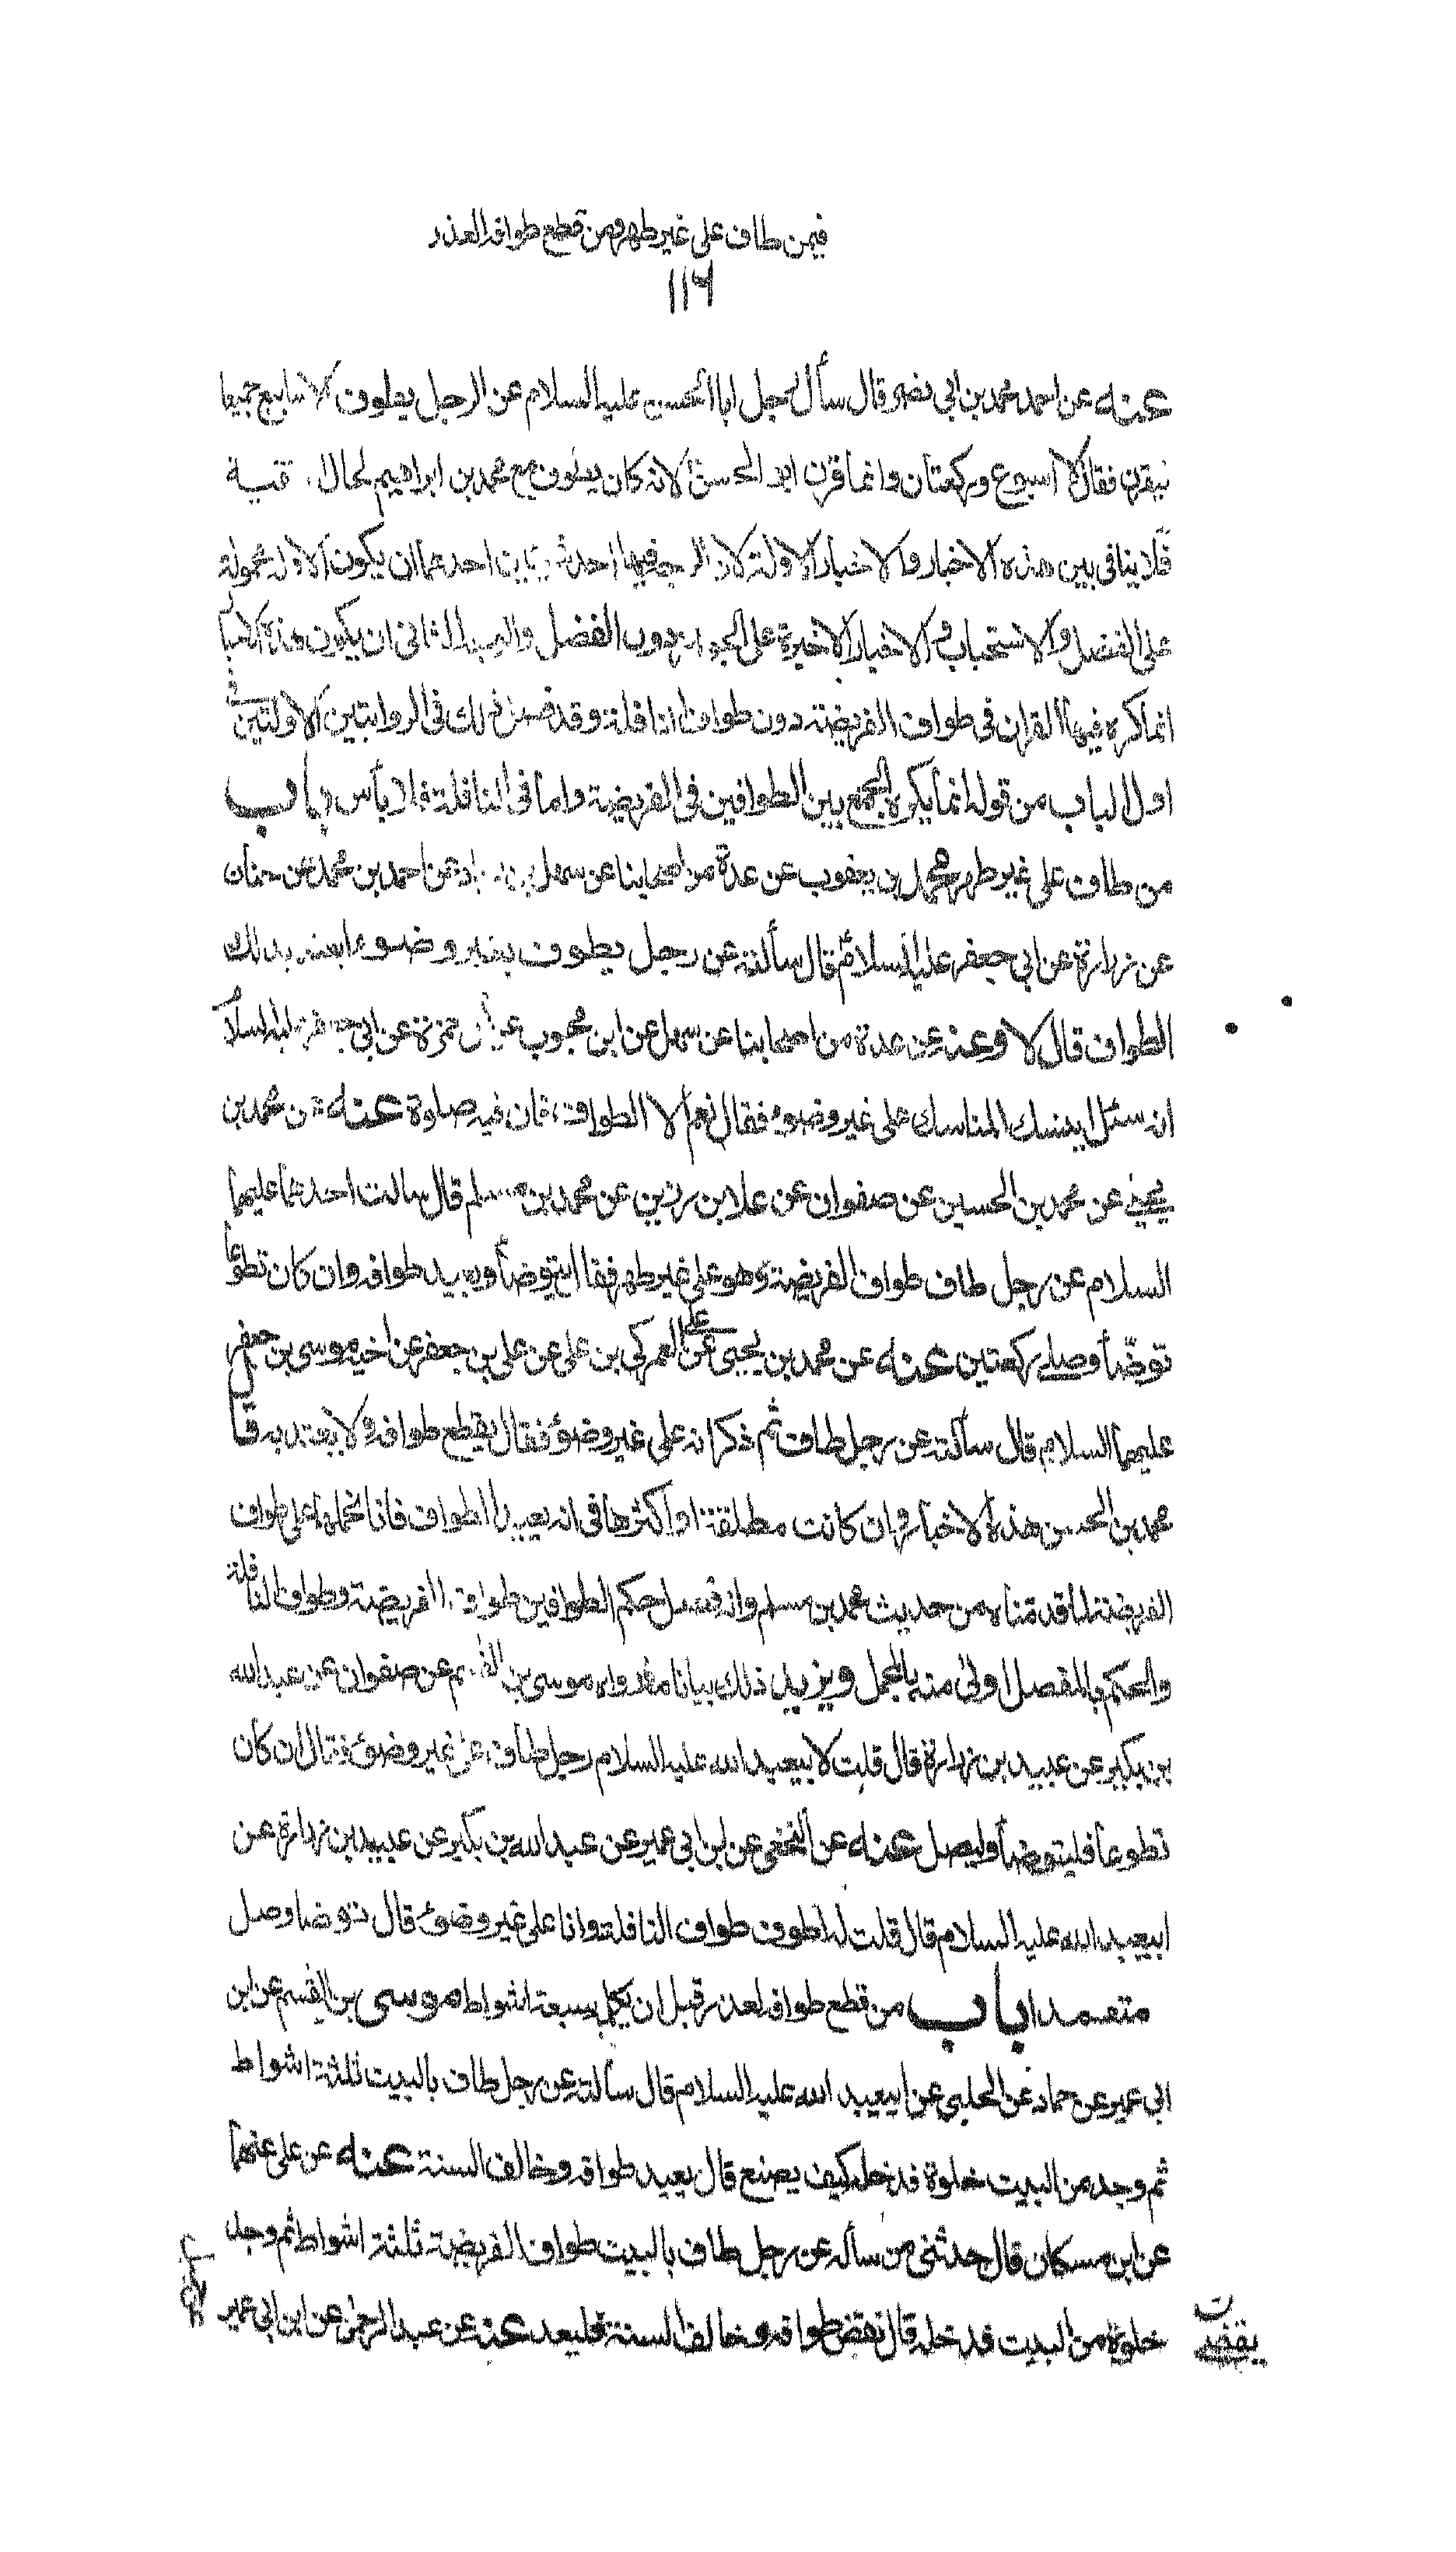 فيمن طاف على غير طهر ومن قطع طوافه لعذر
١١٦
عنه عن احمد محمد بن ابى نصر قال سأل رجل ابا الحسن عليه السلام عن الرجل يطوف الاسابيع جميعا
فيقرن فقال لا اسبوع وركعتان وانما قرن ابو الحسن لانه كان يطوف مع محمد بن ابراهيم لحال تقية
فلا ينافى بين هذه الاخبار والاخبار الاولة لان الوجه فيها احد شيئين احدهما ان يكون الاولة محمولة
على الفضل والاستحباب والاخبار الاخيرة على الجواز دون الفضل والوجه الثانى ان يكون هذه الاخبا
انما كره فيها القران فى طواف الفريضة دون طواف النافلة وقد فصل ذلك فى الروايتين الاولتين فى
اول الباب من قوله انما يكره الجمع بين الطوافين فى الفريضة واما فى النافلة فلا بأس باب
من طاف على غير طهر محمد بن يعقوب عن عدة من اصحابنا عن سهل بن زياد عن احمد بن محمد عن حنان
عن زرارة عن ابى جعفر عليه السلام قال سألته عن رجل يطوف بغير وضوء ايعتد بذلك
الطواف قال لا وعنه عن عدة من اصحابنا عن سهل عن ابن محبوب عن ابى حمزة عن ابى جعفر عليه السلام
انه سئل اينسك المناسك على غير وضوء فقال نعم الا الطواف فان فيه صلوة عنه عن محمد بن
يحيى عن محمد بن الحسين عن صفوان عن علا بن رزين عن محمد بن مسلم قال سالت احدهما عليهما
السلام عن رجل طاف طواف الفريضة وهو على غير طهر فقال يتوضأ ويعيد طوافه وان كان تطوعا
توضأ وصلى ركعتين عنه عن محمد بن يحيى عن العمركى بن على عن على بن جعفر عن اخيه موسى بن جعفر
عليهما السلام قال سألته عن رجل طاف ثم ذكر انه على غير وضوء فقال يقطع طوافه ولا يعتد به قال
محمد بن الحسن هذه الاخبار وان كانت مطلقة او اكثرها فى انه يعيد الطواف فانا نحملها على طواف
الفريضة لما قدمناه من حديث محمد بن مسلم وانه فصل حكم الطوافين طواف الفريضة وطواف النافلة
والحكم بالمفصل اولى منه بالمجمل ويزيد ذلك بيانا ما رواه موسى بن القسم عن صفوان عن عبد الله
بن بكير عن عبيد بن زرارة قال قلت لابيعبد الله عليه السلام رجل طاف على غير وضوء فقال ان كان
تطوعا فليتوضأ وليصل عنه عن النخعى عن ابن ابى عمير عن عبد الله بن بكير عن عبيد بن زرارة عن
ابيعبد الله عليه السلام قال قلت له اطوف طواف النافلة وانا على غير وضوء قال توضا وصل
متعمدا باب من قطع طوافه لعذر قبل ان يكمل سبعة اشواط موسى بن القسم عن ابن
ابى عمير عن حماد عن الحلبى عن ابيعبد الله عليه السلام قال سألته عن رجل طاف بالبيت ثلثة اشواط
ثم وجد من البيت خلوة فدخله كيف يصنع قال يعيد طوافه وخالف السنة عنه عن على عنهما
عن ابن مسكان قال حدثنى من سأله عن رجل طاف بالبيت طواف الفريضة ثلثة اشواط ثم وجد
خلوة من البيت فدخله قال نقض طوافه وخالف السنة فليعد عنه عن عبد الرحمن عن ابن ابى عمير
يقضى